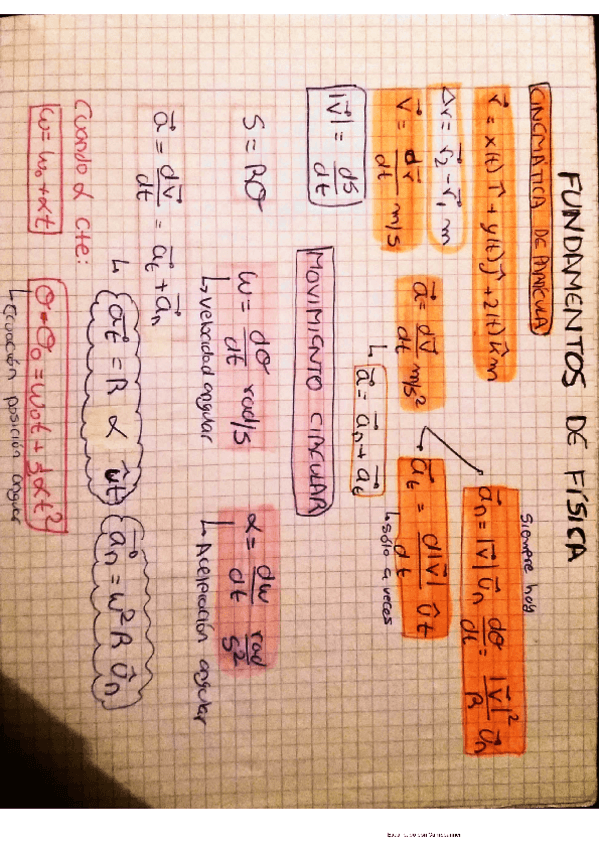 FUNDAMENTOS DE FÍSICA
CINEMÁTICA DE PARTÍCULA
r⃗ = x(t) î + y(t) ĵ + z(t) k̂ m
Δr = r⃗₂ - r⃗₁ m
v⃗ = dr⃗/dt m/s
|v⃗| = ds/dt
a⃗ = dv⃗/dt m/s²
↳ a⃗ = a⃗n + a⃗t
Siempre hay
a⃗n = |v⃗| ûn dσ/dt = |v⃗|²/R ûn
a⃗t = d|v⃗|/dt ût
↳ sólo a veces
MOVIMIENTO CIRCULAR
S = Rσ
ω = dσ/dt rad/s
↳ velocidad angular
α = dω/dt rad/s²
↳ Aceleración angular
a⃗ = dv⃗/dt = a⃗t + a⃗n
↳ a⃗t = R α ût
a⃗n = ω² R ûn
Cuando α cte:
ω = ω₀ + αt
σ = σ₀ = ω₀t + ½αt²
↳ Ecuación posición angular